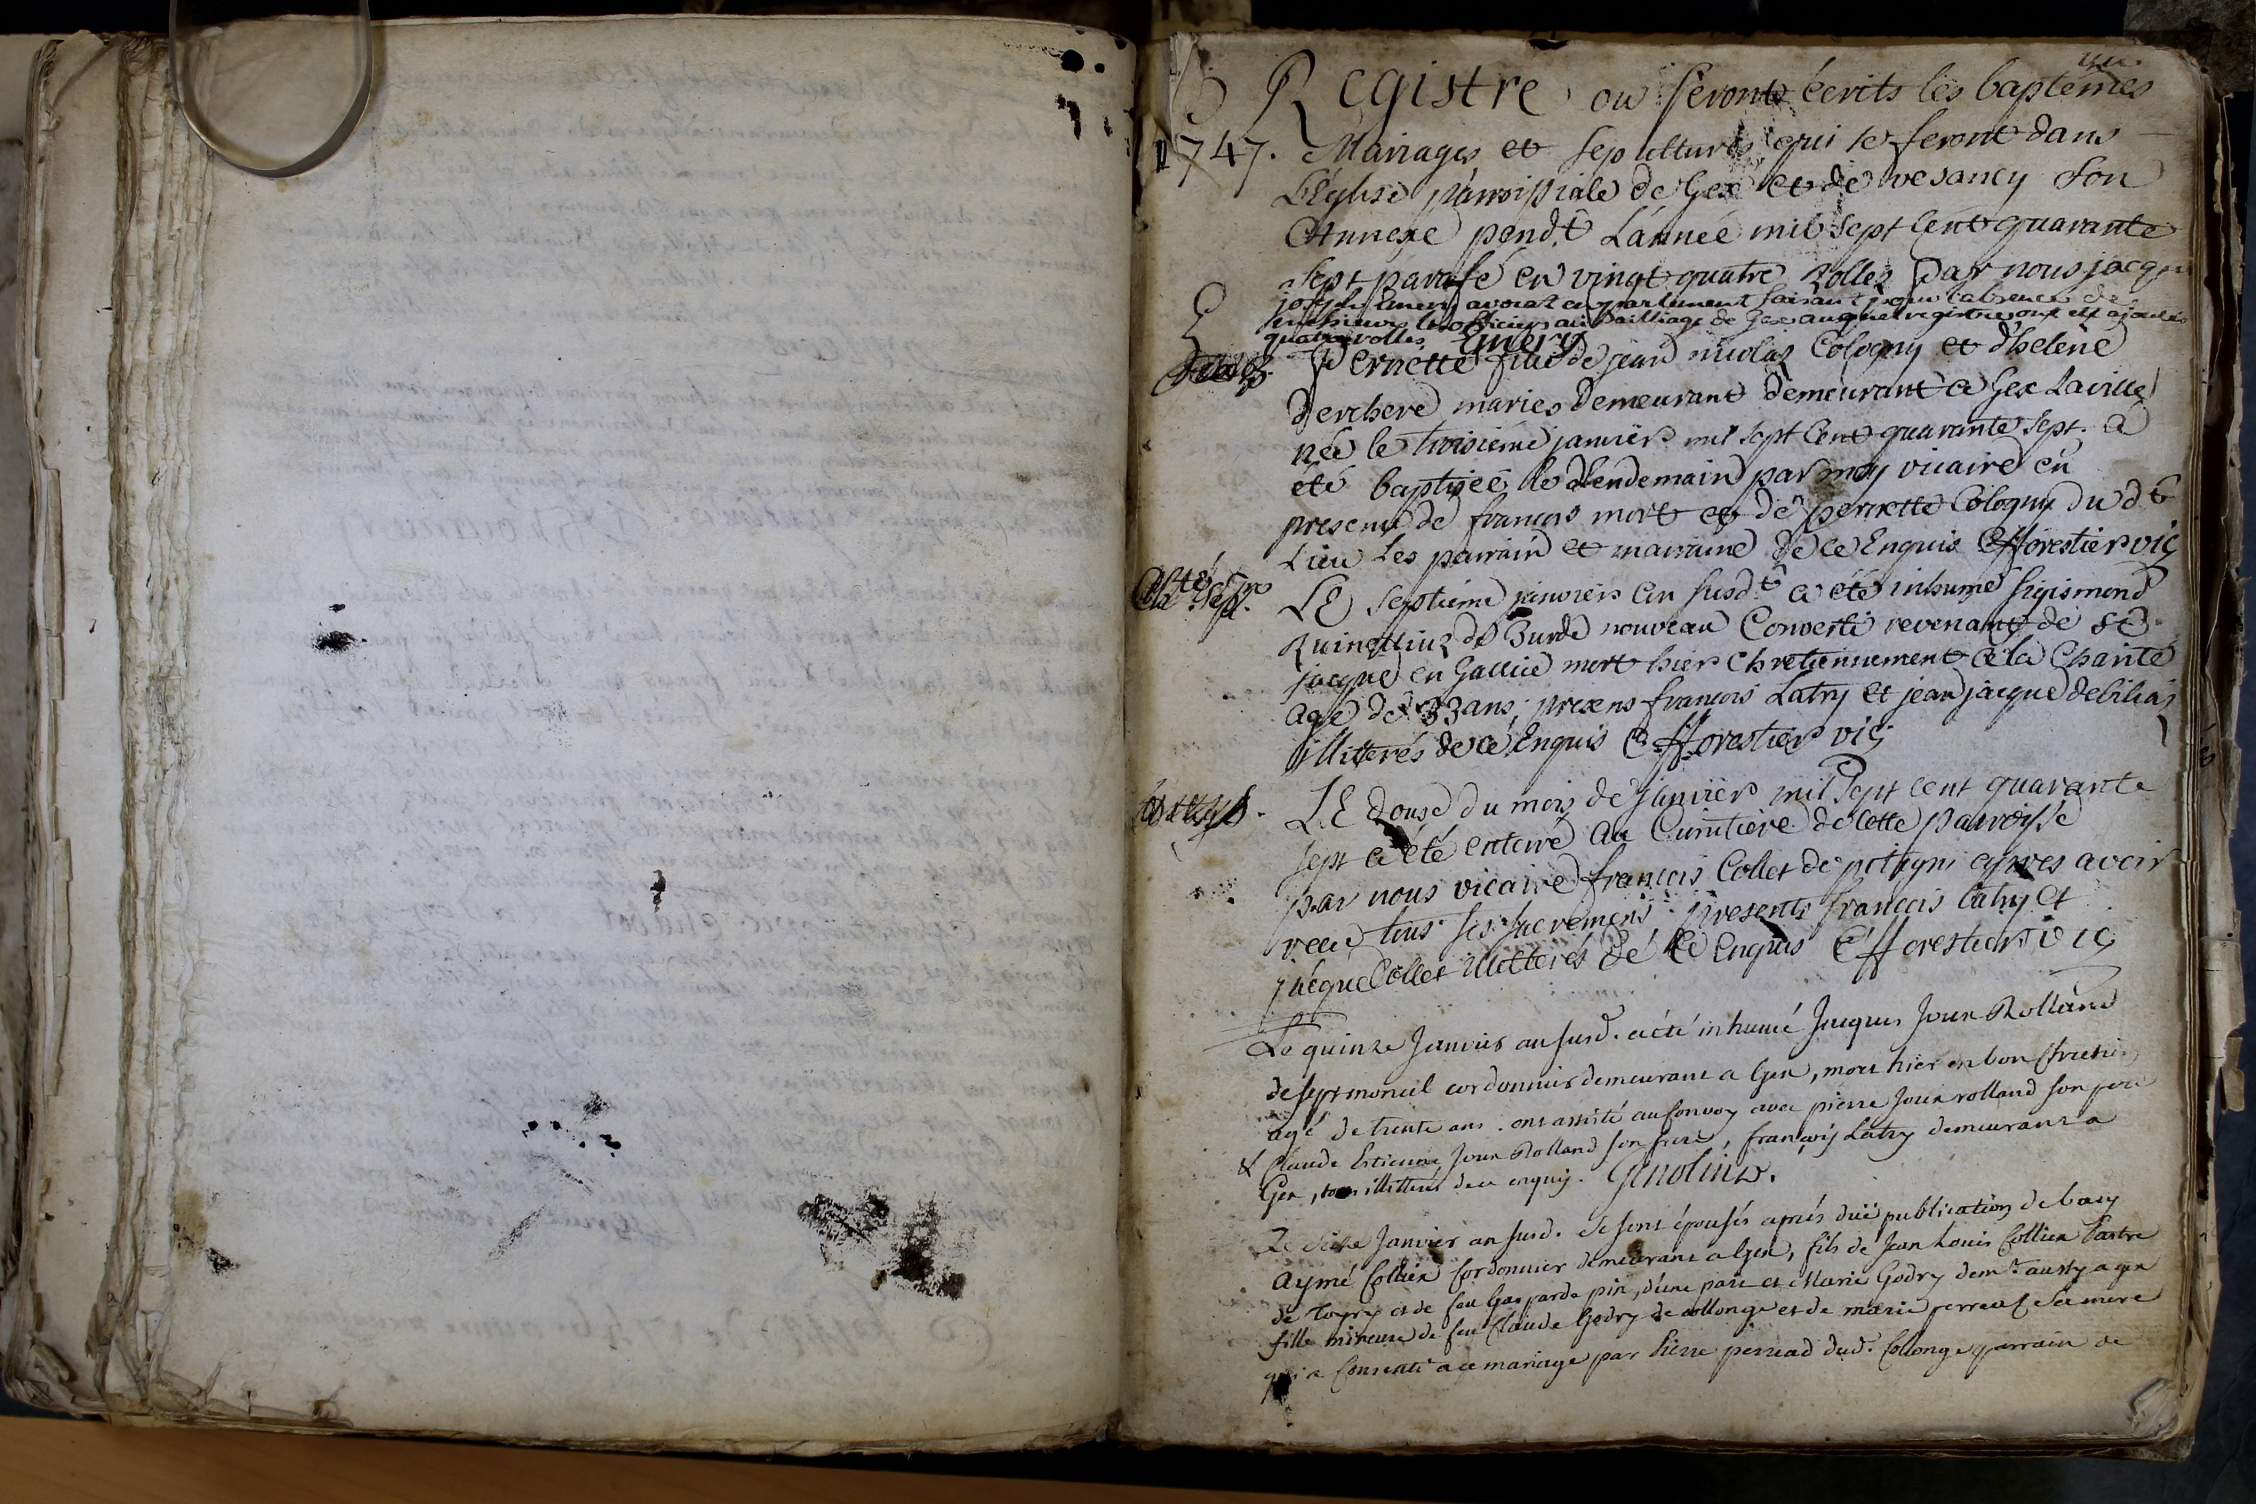 un.
Registre ou seront écrits les baptêmes
1747. Mariages et sepultures qui se feront dans
L'Eglise parroissiale de Gex et de vesancy son
Annexe pend.t L'année mil sept Cent quarante
sept parafé en vingt quatre rolles par nous jacque
joseph Emery avocat en parlement faisant pour l'absence de
messieurs les officiers au bailliage de Gex auquel registre ont eté ajoutés
quatre rolles Emery
Pernette fille de jean nicolas Cologny et d'helene
derchere mariés demeurant demeurant a Gex Laville
née le troisieme janvier mil sept Cent quarante sept. a
été baptisée le lendemain par moy vicaire en
presence de françois mort et de pernette Cologny du dt
Lieu les parrain et marraine de ce Enquis Efforestier vic
Chté Sep.re
LE septieme janvier an susd.t a été inhumé sigismond
de Zurde nouveau Converti revenant de St
jacque en Gallice mort hier chretiennement a la Charité
age de 33 ans, presens françois Latry et jean jacque debilias
illiterés de ce Enquis Efforestier vic
LE douse du mois de Janvier mil Sept cent quarante
sept a été enterré au Cimitiere de cette parroisse
par nous vicaire françois Collet de pitegni apres avoir
receu tous ses sacremens presents françois latry et
jacque Collet illitterés de ce Enquis Efforestier vic
Le quinze Janvier an susd. a été inhumé Jacques Joux Rolland
de septmoncel cordonnier demeurant a Gex, mort hier en bon chretien
agé de trente ans. ont assisté au convoy avec pierre Joux rolland son pere
& Claude Estienne Joux Rolland son frere, françois Latry demeurant a
Gex, tous illitterés de ce enquis. Gnolin v.
Le seize Janvier an susd. se sont épousés aprés düe publication de bans
aymé Collien Cordonnier demeurant a Gex, fils de Jean Louis Collien
de Toyry et de feu Gasparde pin, d'une part et Marie Godry dem.t aussy a gex
fille mineure de feu Claude Godry de collonge et de marie perreal sa mere
qui a consenti a ce mariage par Pierre perread dud. Collonge parrain de